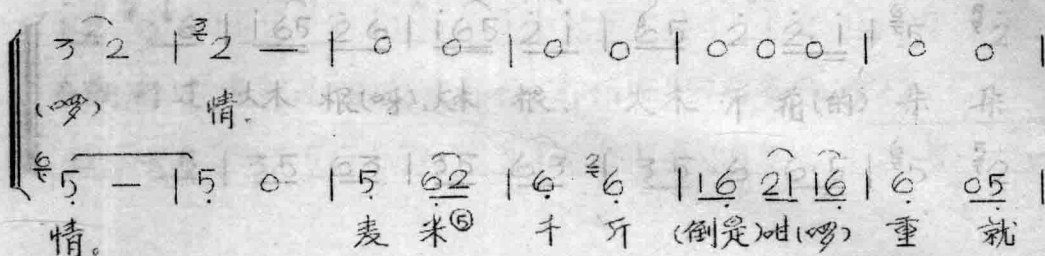 3 2 | 3 2 — | 0 0 | 0 0 | 0 0 0 | 0 0 |
(啰) 情。
6 5 — | 5 0 | 5 62 | 6 2 6 | 16 21 16 | 6 05 |
情。 麦 米⑤ 千 斤 (倒是)咁(啰) 重 就